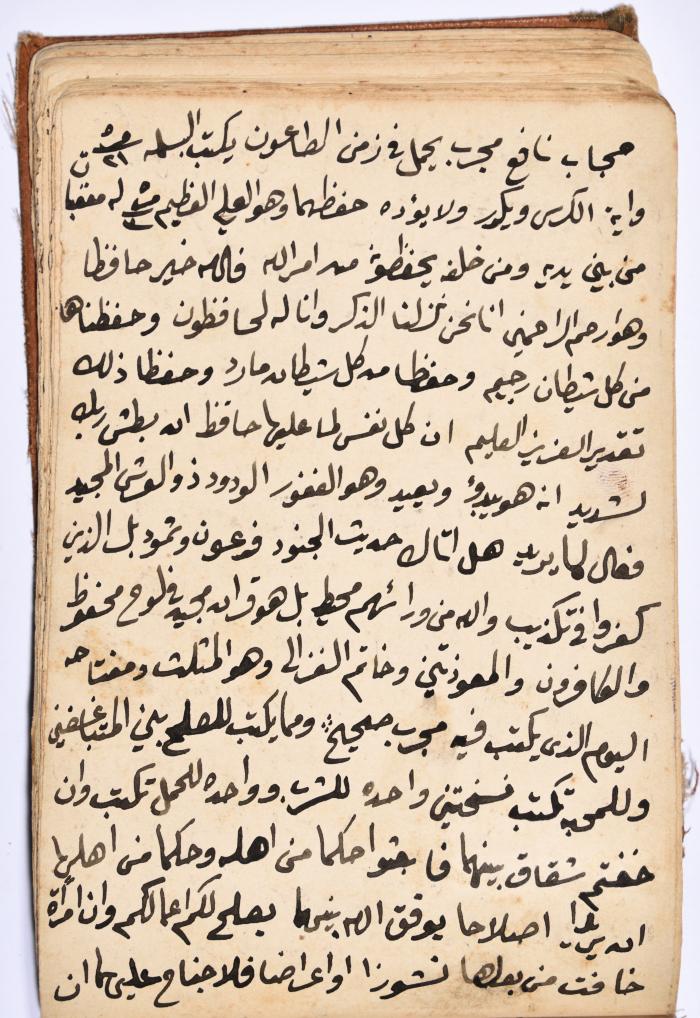 حجاب نافع مجرب يحمل في زمن الطاعون يكتب البسملة مرة ٢١
واية الكرسي ويكرر ولا يؤده حفظهما وهو العلي العظيم مرة له معقبات
من بين يديه ومن خلفه يحفظونه من امر الله فالله خير حافظا
وهو ارحم الراحمين انا نحن نزلنا الذكر وانا له لحافظون وحفظناها
من كل شيطان رجيم وحفظا من كل شيطان مارد وحفظا ذلك
تقدير العزيز العليم ان كل نفس لما عليها حافظ ان بطش ربك
لشديد انه هو يبدؤ ويعيد وهو الغفور الودود ذو العرش المجيد
فعال لما يريد هل اتاك حديث الجنود فرعون وثمود بل الذين
كفروا في تكذيب والله من ورائهم محيط بل هو قران مجيد في لوح محفوظ
والكافرون والمعوذتين وخاتم الغزالي وهو المثلث ومفتاحه
اليوم الذي يكتب فيه مجرب صحيح ومما يكتب للصلح بين المتباغضين
وللمحبة تكتب نسختين واحده للشرب وواحده للحمل تكتب وان
خفتم شقاق بينهما فابعثوا حكما من اهله وحكما من اهلها
ان يريدا اصلاحا يوفق الله بينهما يصلح لكم اعمالكم وان امرأة
خافت من بعلها نشوزا او اعراضا فلا جناح عليهما ان